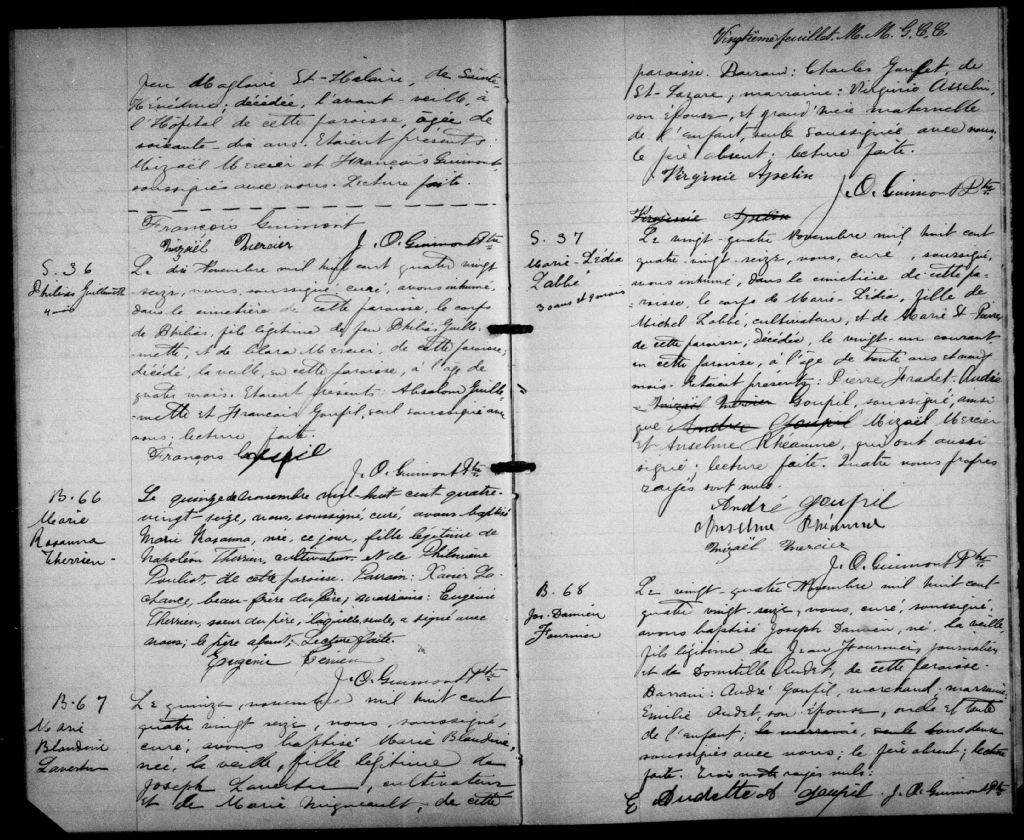 feu Magloire St-Hilaire, de Sainte-
Hénédine; décédée, l'avant-veille, à
l'Hôpital de cette paroisse, âgée de
soixante dix ans. Etaient présents:
Mizaël Mercier et François Guimont,
soussignés avec nous. Lecture faite.
François Guimont
Mizaël Mercier J. O. Guimont Ptre
S. 36
Philias Guillemette
4 mois
Le dix Novembre mil huit cent quatre vingt
seize, nous, soussigné curé, avons inhumé,
dans le cimetière de cette paroisse, le corps
de Philias, fils légitime de feu Philias Guille-
mette, et de Clara Mercier, de cette paroisse,
décédé, la veille, en cette paroisse, à l'age de
quatre mois. Etaient présents Absalom Guille-
mette et Francois Goupil, seul soussigné avec
nous; lecture faite.
François Goupil
J. O. Guimont Ptre
B. 66
Marie
Rosanna
Therrien
Le quinze de novembre mil-huit cent quatre-
vingt-seize, nous, soussigné, curé, avons baptisé
Marie Rosanna, née, ce jour, fille légitime de
Napoléon Therrien, cultivateur et de Philomène
Pouliot, de cette paroisse. Parrain: Xavier La-
chance, beau-frère du père; marraine: Eugénie
Therrien, sœur du père, laquelle, seule, a signé avec
nous; le père absent; Lecture faite.
Eugenie Terrien
J. O. Guimont Ptre
B. 67
Marie
Blandine
Lavertu
Le quinze, novembre mil huit cent
quatre vingt seize, nous, soussigné,
curé, avons baptisé Marie Blandine,
née, la veille, fille légitime de
Joseph Lavertu, cultivateur
et de Marie Migneault, de cette
Vingtième feuillet. M. M. G. C. C.
paroisse. Parrain: Charles Goupet, de
St-Lazare, marraine: Virginie Asselin,
son épouse, et grand'mère maternelle
de l'enfant, seule soussignée avec nous,
le père absent; lecture faite.
Virginie Asselin
J. O. Guimont Ptre
Virginie Asselin
S. 37
Marie-Lédia
Labbé
3 ans et 9 mois
Le vingt-quatre Novembre mil huit cent
quatre-vingt-seize, nous, curé, soussigné,
avons inhumé, dans le cimetière de cette pa-
roisse, le corps de Marie-Lédia, fille de
Michel Labbé, cultivateur, et de Marie St Pierre,
de cette paroisse; décédée, le vingt-un courant
en cette paroisse, à l'âge de trois ans et neuf
mois. Etaient présents: Pierre Fradet-André
Mizaël Mercier Goupil, soussigné, ainsi
que André Goupil Mizaël Mercier
et Anselme Rheaume, qui ont aussi
signé; lecture faite. Quatre noms propres
rayés sont nuls.
André Goupil
Anselme Rhéaume
Mizaël Mercier
J. O. Guimont Ptre
B. 68
Jos. Damien
Fournier
Le vingt-quatre Novembre mil huit cent
quatre vingt-seize, nous, curé, soussigné,
avons baptisé Joseph Damien, né, la veille,
fils légitime de Jean Fournier, journalier
et de Domitille Audet, de cette paroisse.
Parrain: André Goupil, marchand, marraine
Emilie Audet, son épouse, oncle et tante
de l'enfant; la marraine, seule tous deux
soussignés avec nous; le père absent; lecture
faite. Trois mots rayés nuls:
E Audette A Goupil. J. O. Guimont Ptre